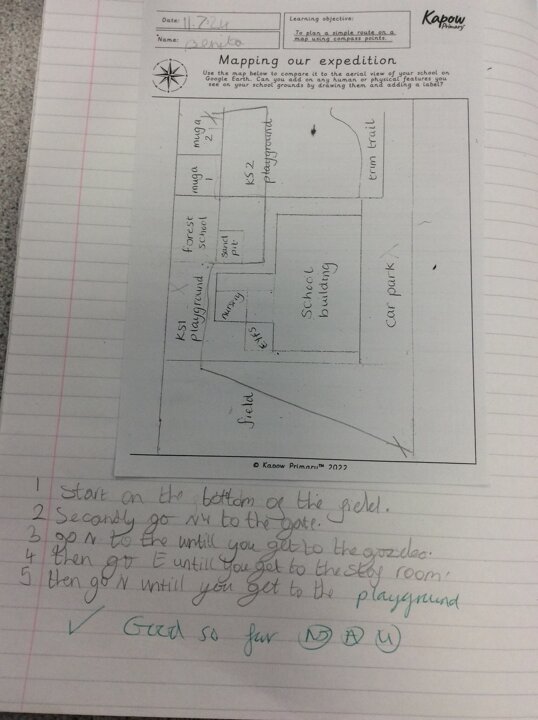 Date: 11.7.24
Name: Benita
Learning objective:
To plan a simple route on a
map using compass points.
Kapow
Primary
Mapping our expedition
Use the map below to compare it to the aerial view of your school on
Google Earth. Can you add on any human or physical features you
see on your school grounds by drawing them and adding a label?
muga 2
muga 1
KS2 playground
trim trail
forest school
sand pit
KS1 playground
nursery
EYFS
School building
car park
field
© Kapow Primary™ 2022
1 Start on the bottom of the field.
2 Secondly go N4 to the gate.
3 go N to the untill you get to the gazebo.
4 then go E untill you get to the stay room.
5 then go N untill you get to the playground
✓ Good so far N A U